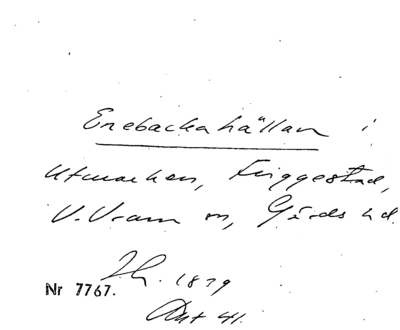 Enebackahällan i
Utmarken, Friggestad,
V. Vram sn, Gärds hd.
Nr 7767. 1839
Akt 41.